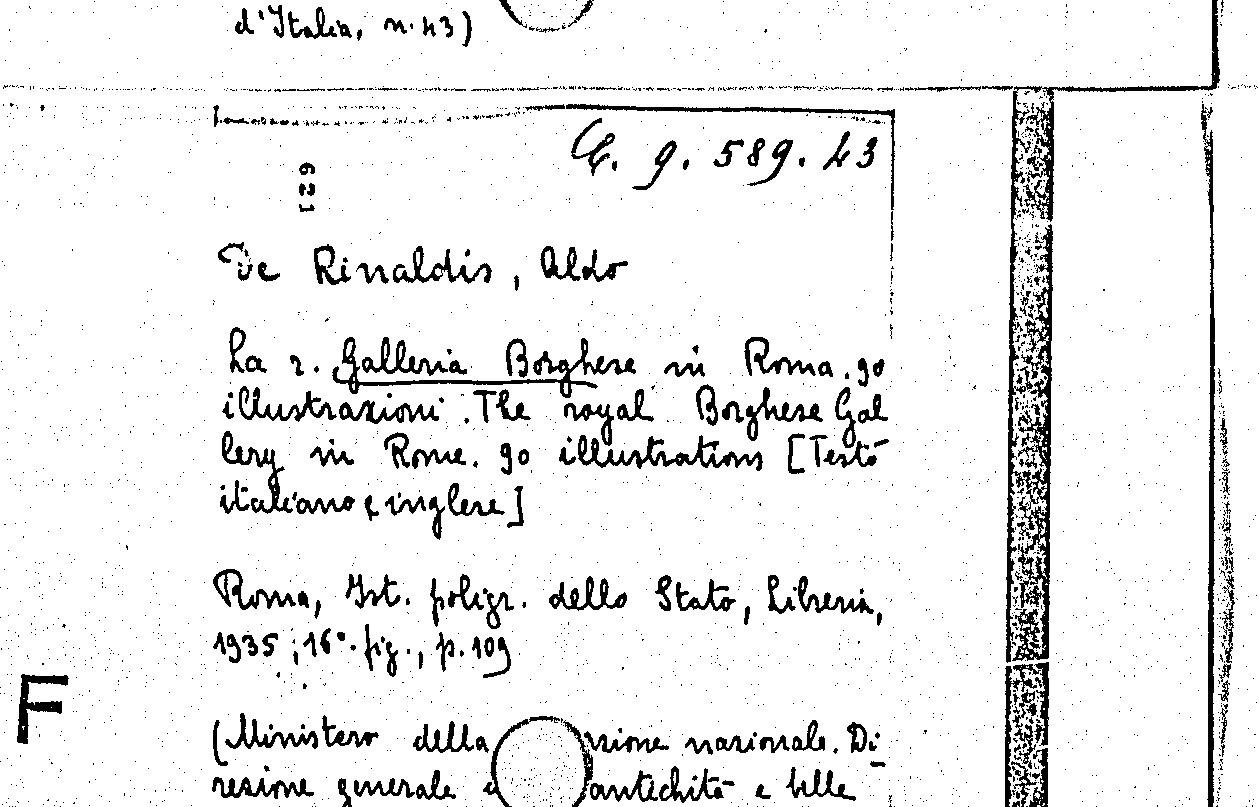 d'Italia, n. 43)
C. 9. 589. 43
621
De Rinaldis, Aldo
La r. Galleria Borghese in Roma. 90
illustrazioni. The royal Borghese Gal
lery in Rome. 90 illustrations [Testo
italiano e inglese]
Roma, Ist. poligr. dello Stato, Libreria,
1935; 16°. fig., p. 109
F
(Ministero della zione nazionale. Di
rezione generale antichità e belle